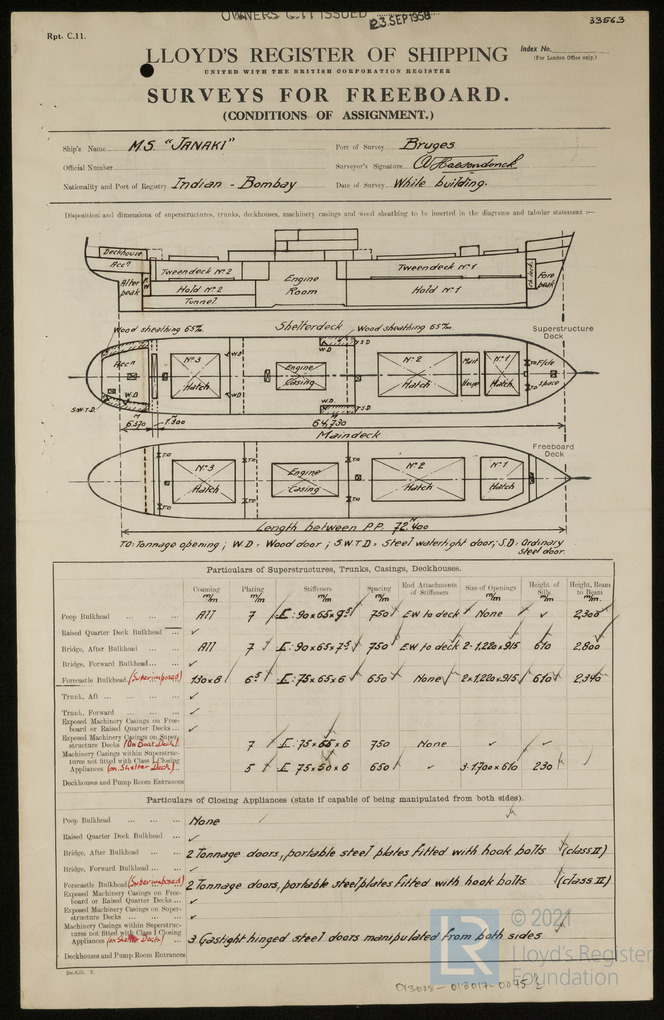 OWNERS C.11 ISSUED 23 SEP 1958
33563
Rpt. C.11.
LLOYD'S REGISTER OF SHIPPING
UNITED WITH THE BRITISH CORPORATION REGISTER
Index No.
(For London Office only.)
SURVEYS FOR FREEBOARD.
(CONDITIONS OF ASSIGNMENT.)
Ship's Name M.S "JANAKI" Port of Survey Bruges
Official Number Surveyor's Signature
Nationality and Port of Registry Indian - Bombay Date of Survey While building.
Disposition and dimensions of superstructures, trunks, deckhouses, machinery casings and wood sheathing to be inserted in the diagrams and tabular statement :—
Deckhouse
Accn
After peak
Tweendeck No 2
Hold No 2
Tunnel
Engine Room
Tweendeck No 1
Hold No 1
Fore peak
Wood sheathing 65 m/m Shelterdeck Wood sheathing 65 m/m
Superstructure Deck
Accn No 3 Hatch Engine Casing No 2 Hatch Mast House No 1 Hatch F/cle space
W.D W.D. S.D
S.W.T.D. W.D T.O
6.570 1.300 64,730
Maindeck
Freeboard Deck
T.O No 3 Hatch Engine Casing T.O No 2 Hatch No 1 Hatch
Length between P.P. 72.400
T.O: Tonnage opening; W.D = Wood door; S.W.T.D = Steel watertight door; S.D: Ordinary steel door.
Particulars of Superstructures, Trunks, Casings, Deckhouses.
Coaming m/m Plating m/m Stiffeners m/m Spacing m/m End Attachments of Stiffeners Size of Openings m/m Height of Sills m/m Height, Beam to Beam m/m
Poop Bulkhead All 7 90 x 65 x 9.5 750 EW to deck None ✓ 2,300
Raised Quarter Deck Bulkhead ✓
Bridge, After Bulkhead All 7 90 x 65 x 7.5 750 EW to deck 2-1.220 x 915 610 2,800
Bridge, Forward Bulkhead ✓
Forecastle Bulkhead (Superimposed) 130 x 8 6.5 75 x 65 x 6 650 None 2 x 1.220 x 915 610 2,340
Trunk, Aft ✓
Trunk, Forward ✓
Exposed Machinery Casings on Freeboard or Raised Quarter Decks ✓
Exposed Machinery Casings on Superstructure Decks (On Boat Deck) 7 75 x 65 x 6 750 None ✓ ✓
Machinery Casings within Superstructures not fitted with Class I Closing Appliances (on Shelter Deck) 5 75 x 50 x 6 650 ✓ 3-1700 x 610 230
Deckhouses and Pump Room Entrances
Particulars of Closing Appliances (state if capable of being manipulated from both sides).
Poop Bulkhead None
Raised Quarter Deck Bulkhead ✓
Bridge, After Bulkhead 2 Tonnage doors, portable steel plates fitted with hook bolts (class II)
Bridge, Forward Bulkhead ✓
Forecastle Bulkhead (Superimposed) 2 Tonnage doors, portable steel plates fitted with hook bolts (class II)
Exposed Machinery Casings on Freeboard or Raised Quarter Decks ✓
Exposed Machinery Casings on Superstructure Decks ✓
Machinery Casings within Superstructures not fitted with Class I Closing Appliances (on Shelter Deck) 3 Gastight hinged steel doors manipulated from both sides
Deckhouses and Pump Room Entrances
LR © 2021
Lloyd's Register
Foundation